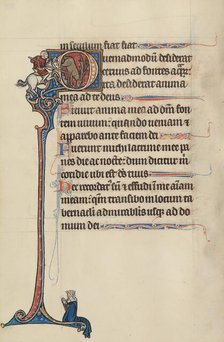 in seculum fiat fiat
Quemadmodum desiderat
cervus ad fontes aqua
ita desiderat anima
mea ad te deus
Sitivit anima mea ad deum fon
vivum quando veniam et
apparebo ante faciem dei
Fuerunt michi lacrime mee pa
nes die ac nocte dum dicitur
michi cotidie ubi est deus tuus
Hec recordatus sum et effudi in me aiam
meam quoniam transibo in locum ta
bernaculi admirabilis usque ad do
mum dei